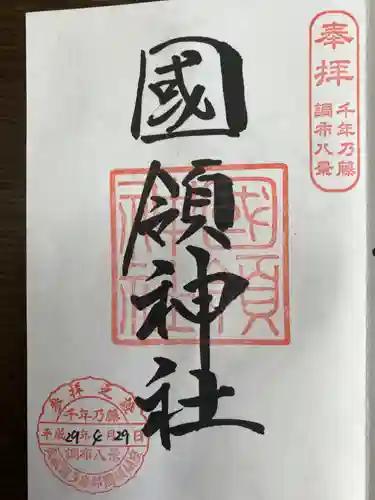 奉拝
千年乃藤
調布八景
國領神社
國領神社
参拝之証
千年乃藤
平成29年4月29日
調布八景